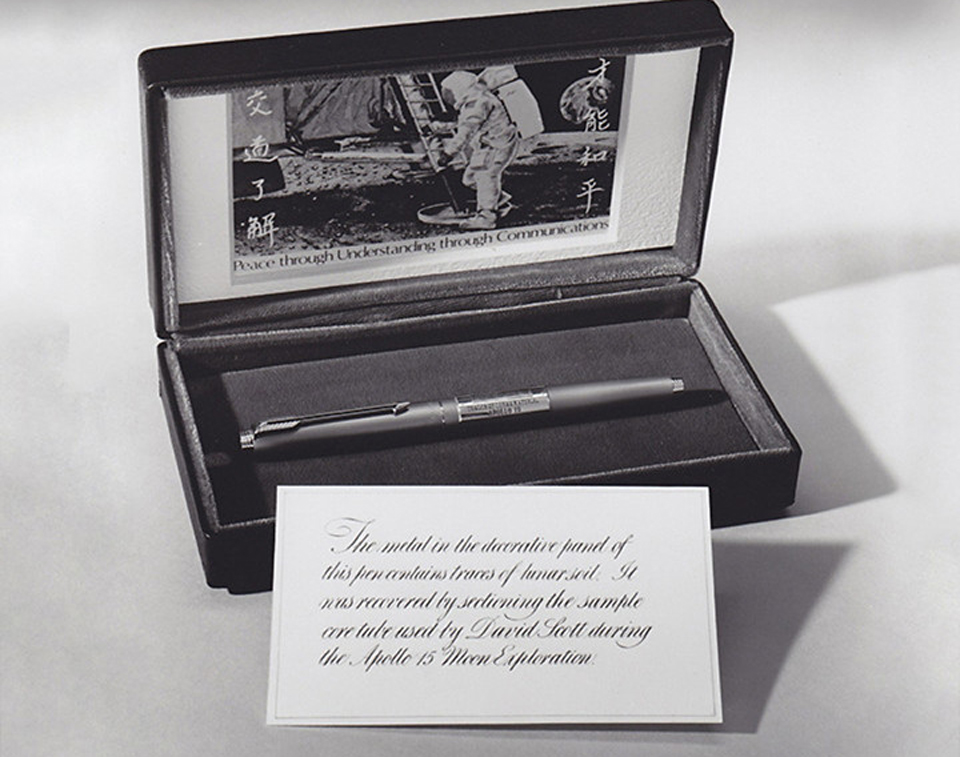 交過了解
才能和平
Peace through Understanding through Communications
APOLLO 15
The metal in the decorative panel of
this pen contains traces of lunar soil. It
was recovered by sectioning the sample
core tube used by David Scott during
the Apollo 15 Moon Exploration.